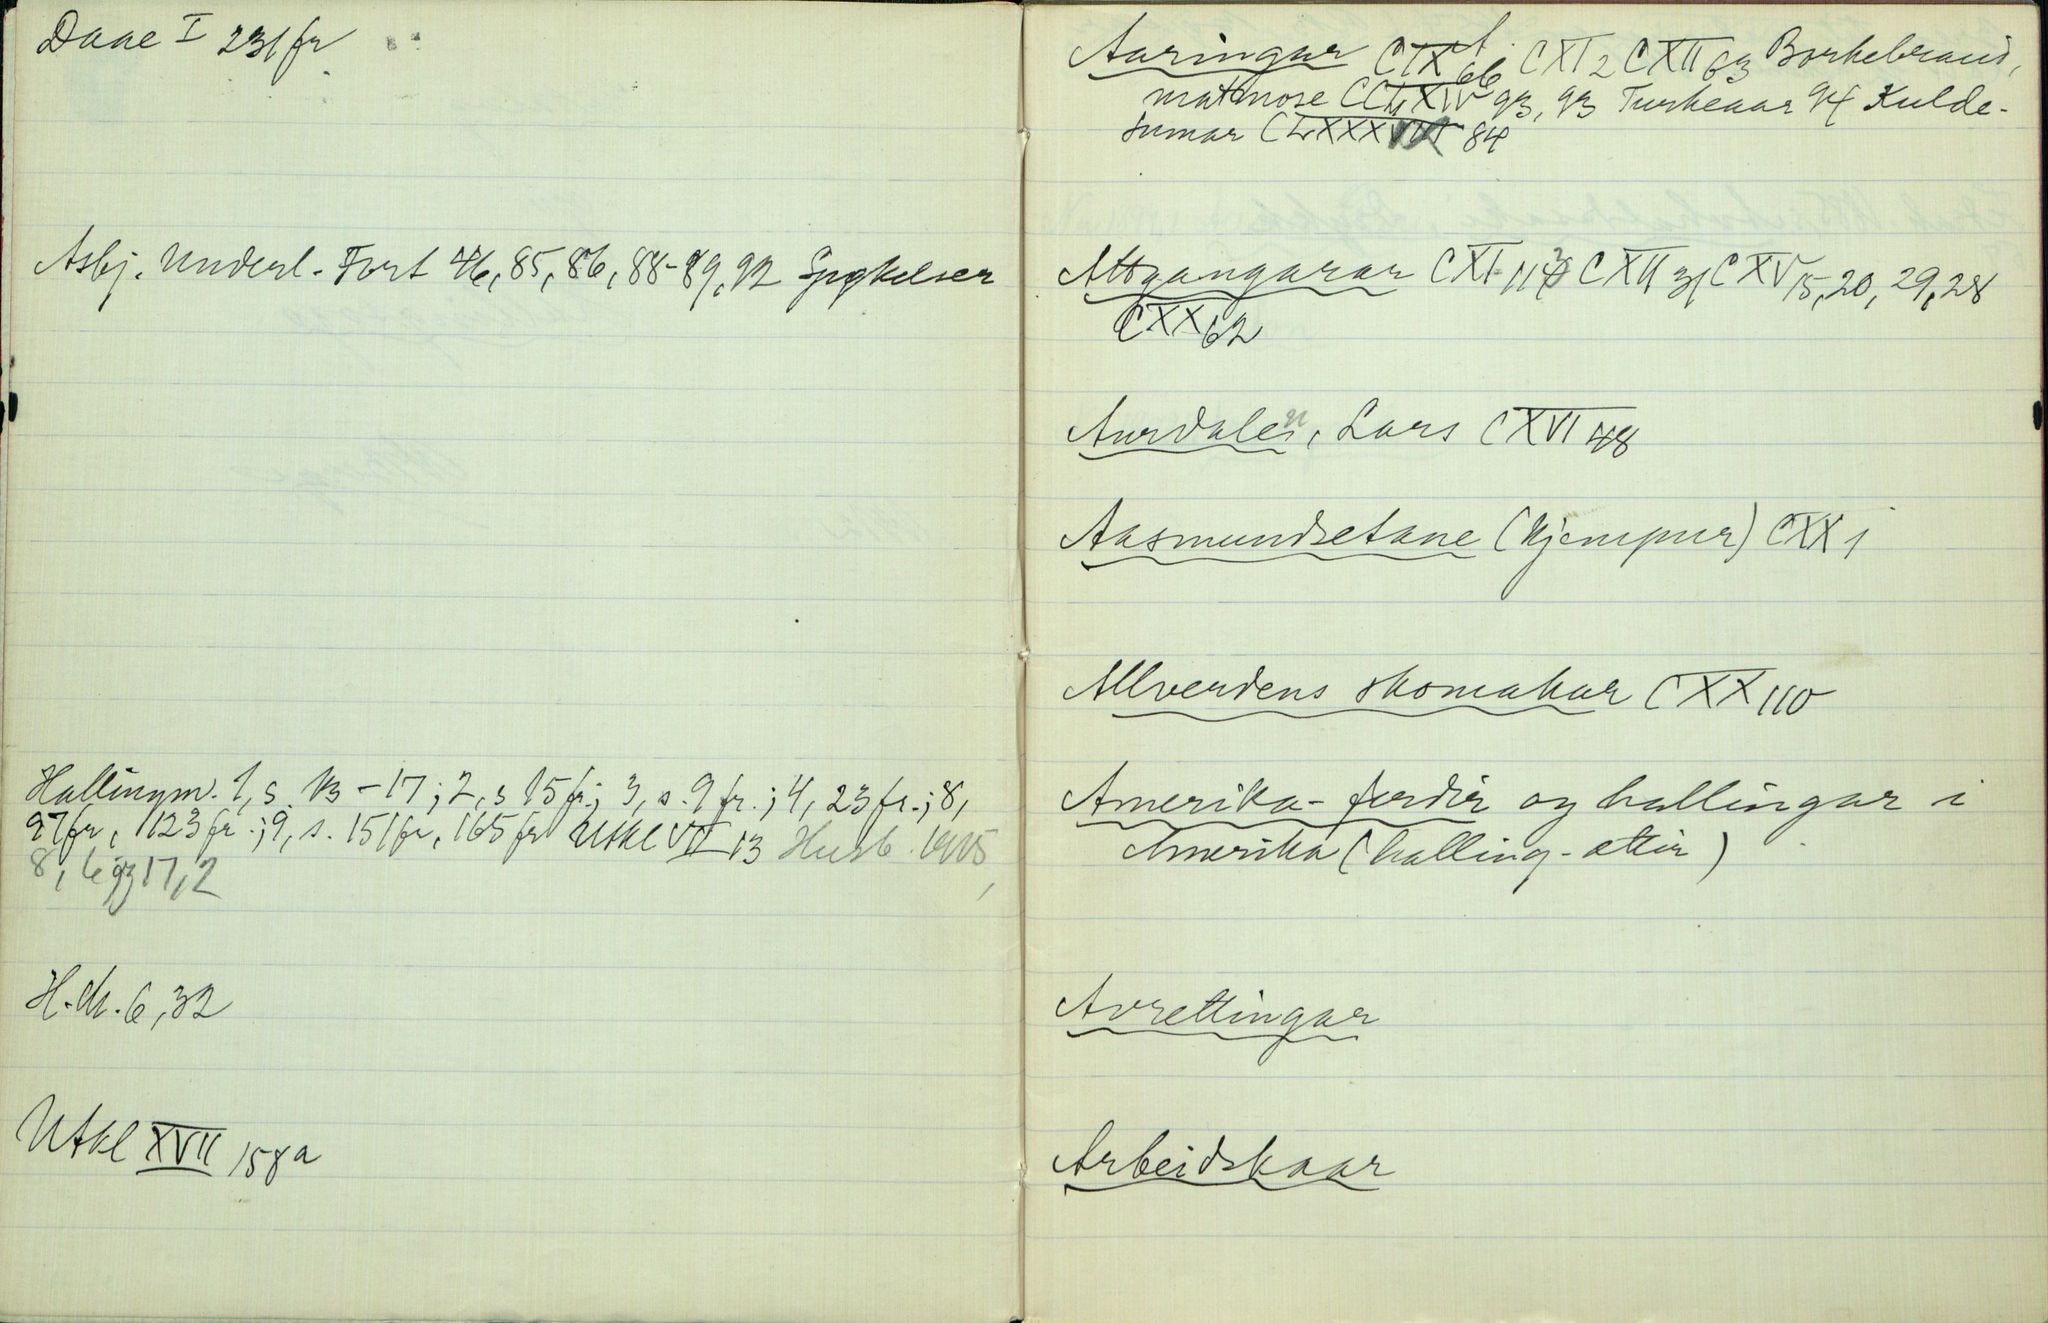 Daae I 231 fr
Asbj. Underl. Fort 46, 85, 86, 88-89, 92 Spøkelser
Hallingm. 1, s. 13-17; 2, s 15 fr; 3, s. 9 fr.; 4, 23 fr.; 8,
97 fr, 123 fr.; 9, s. 151 fr, 165 fr Utkl VII 13 Husb. 1905,
8, 16 og 17, 2
H.M. 6, 32
Utkl XVII 158a
Aaringar CIX 66 CXI 2 CXII 63 Borkebraud,
matmose 93, 93 Turkeaar 94 Kulde-
sumar 84
Attgangarar CXI 113 CXII 31 CXV 15, 20, 29, 28
CXX 62
Aurdalen, Lars CXVI 48
Aasmundsetane (kjempur) CXX 1
Allverdens skomakar CXX 110
Amerika-ferdir og hallingar i
Amerika (halling-ættir)
Avrettingar
Arbeidskaar